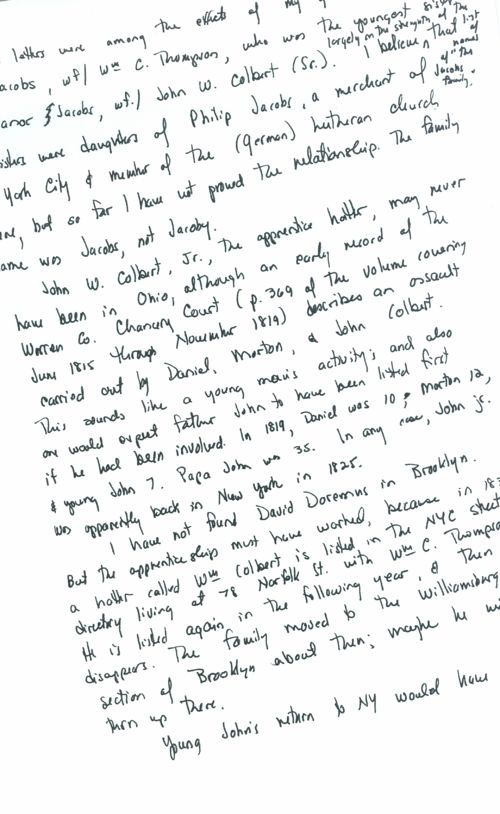 letters were among the effects of my
acobs, wf/ Wm C. Thompson, who was the youngest
anor Jacobs, wf./ John W. Colbert (Sr.). I believe that
largely on the strength of the list
of names
of "the
Jacobs
family."
sisters were daughters of Philip Jacobs, a merchant of
York City & member of the (German) Lutheran church
ere, but so far I have not proved the relationship. The family
ame was Jacobs, not Jacoby.
John W. Colbert, Jr., the apprentice hatter, may never
have been in Ohio, although an early record of the
Warren Co. Chancery Court (p. 369 of the volume covering
June 1815 through November 1819) describes an assault
carried out by Daniel, Morton, & John Colbert.
This sounds like a young man's activity, and also
on would expect father John to have been listed first
if he had been involved. In 1819, Daniel was 10; Morton 12,
& young John 7. Papa John was 35. In any case, John jr.
was apparently back in New York in 1825.
I have not found David Doremus in Brooklyn.
But the apprenticeship must have worked, because in 183
a hatter called Wm Colbert is listed in the NYC street
directory living at 78 Norfolk St. with Wm C. Thompso
He is listed again in the following year, & then
disappears. The family moved to the Williamsburg
section of Brooklyn about then; maybe he wi
turn up there.
Young John's return to NY would have